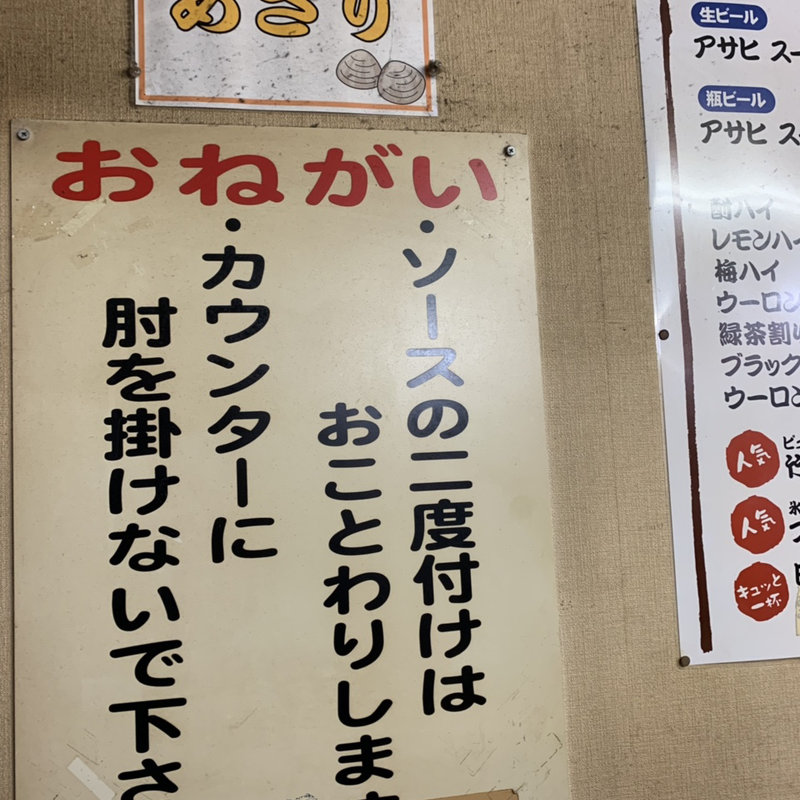 あさり
おねがい
・ソースの二度付けは
おことわりしま
・カウンターに
肘を掛けないで下さ
生ビール
アサヒ スー
瓶ビール
アサヒ ス
酎ハイ
レモンハイ
梅ハイ
ウーロン
緑茶割り
ブラック
ウーロン
人気
人気
キュッと
一杯